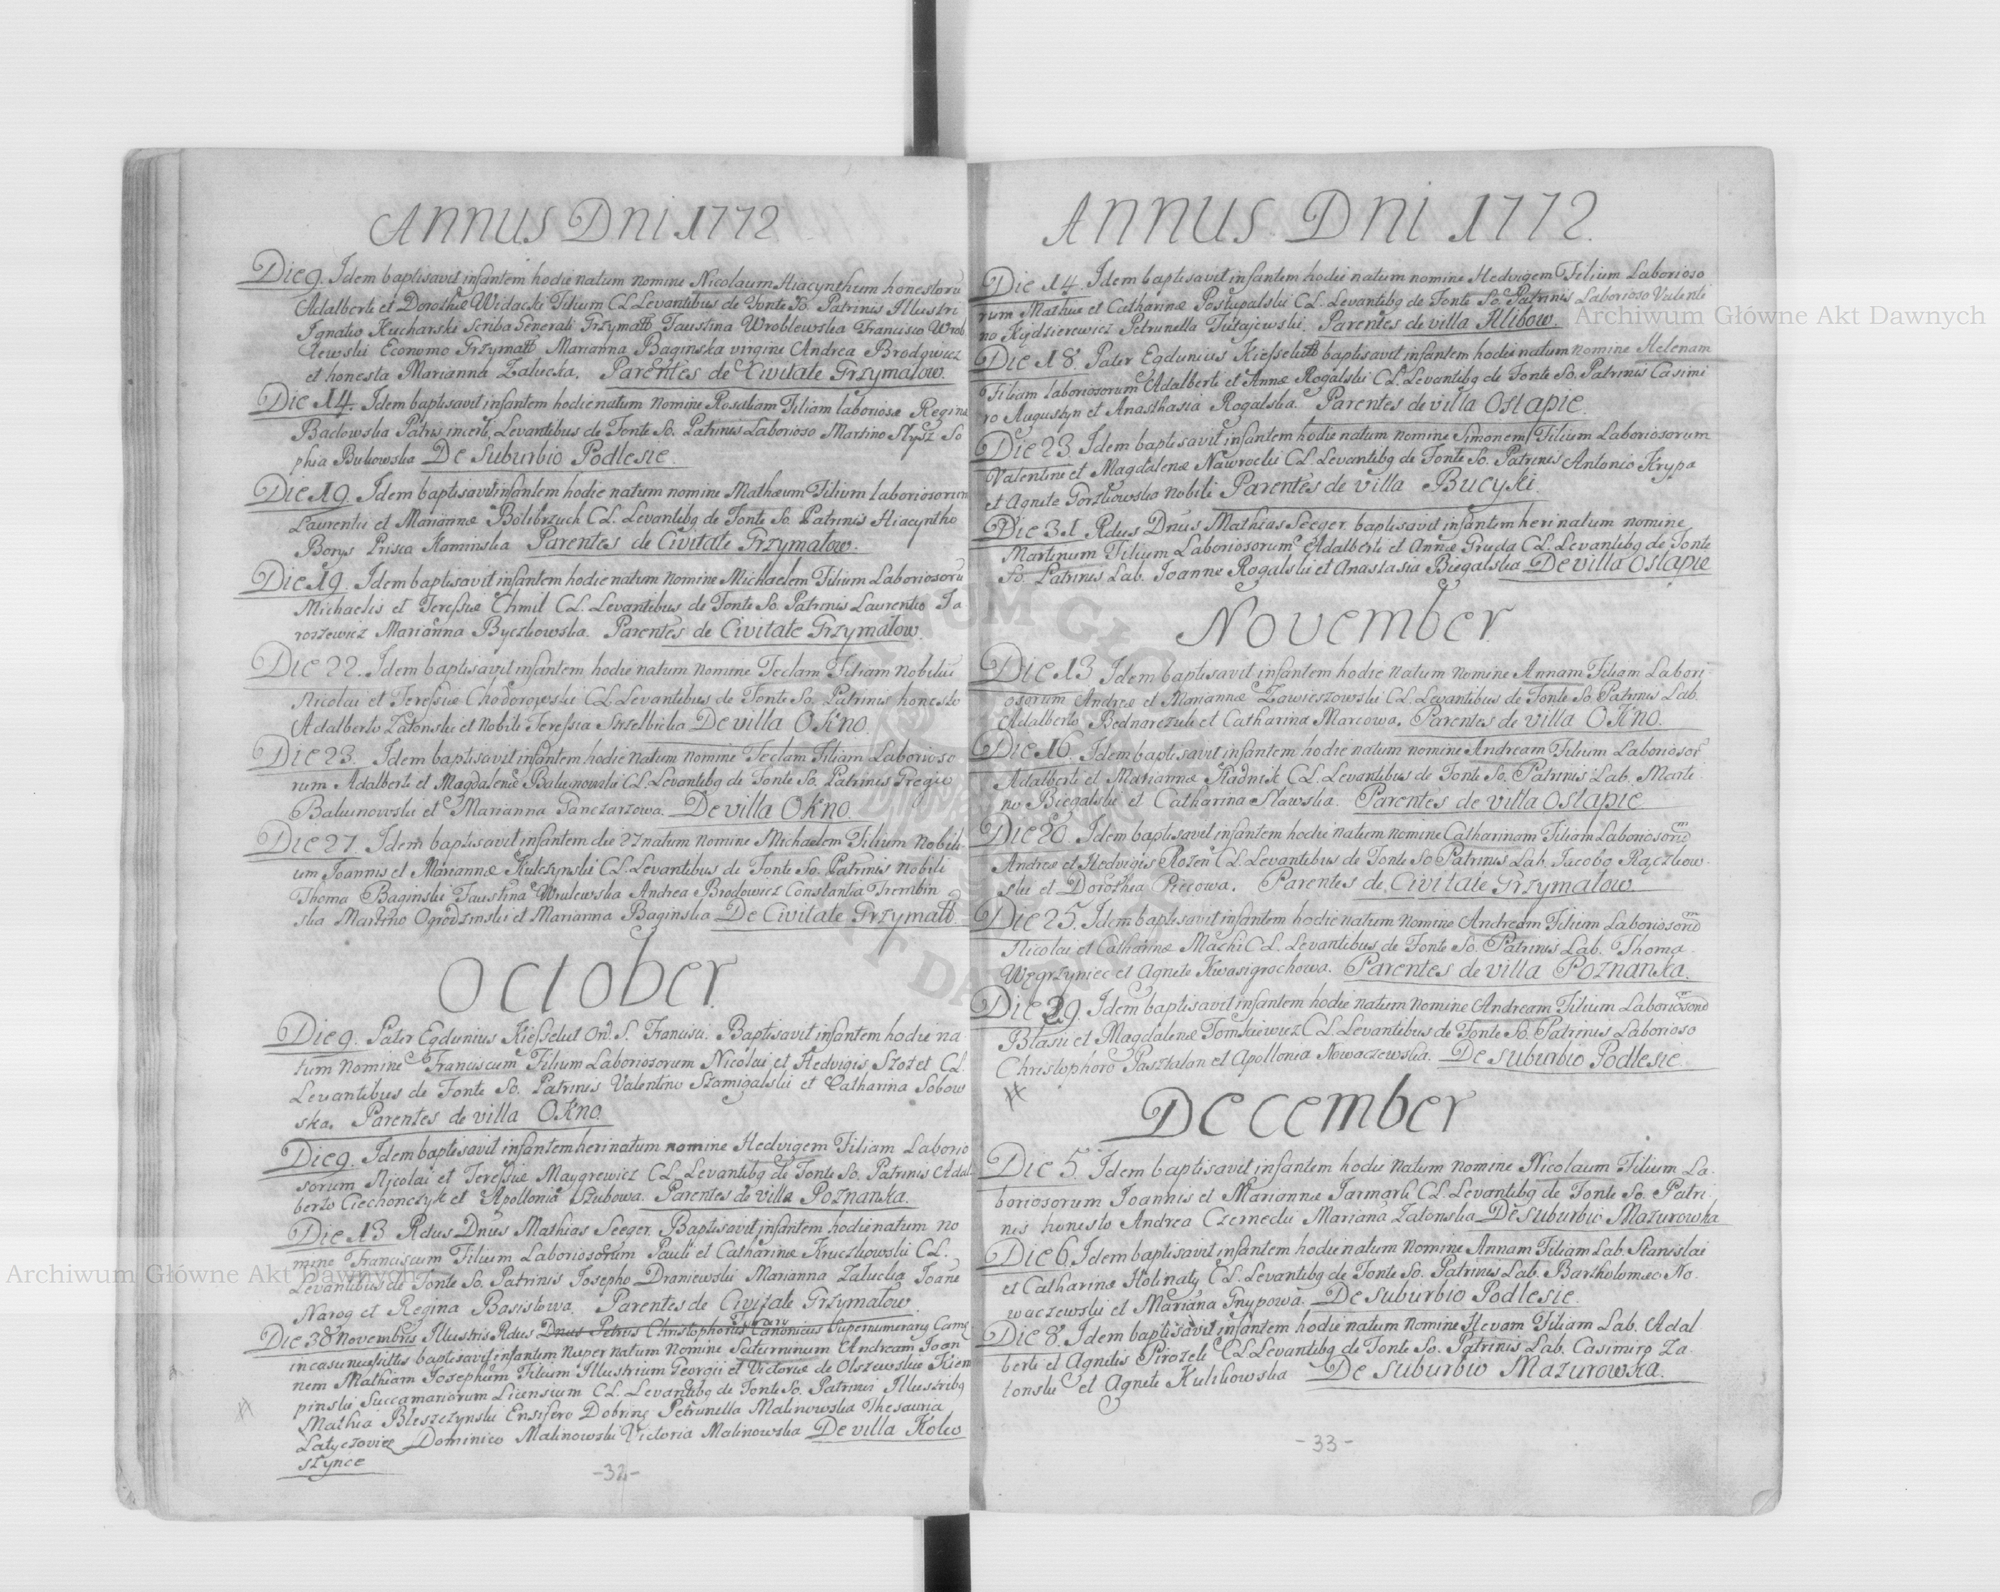 ANNUS DNI 1772
Die 9. Idem baptisavit infantem hodie natum nomine Nicolaum Hiacynthum honestorū
Adalberti et Dorothæ Widacki Filium CL Levantibus de Fonte So. Patrinis Illustri
Ignatio Kucharski Scriba Generali Grzymałt Faustina Wroblewska Francisco Wrob
lewski Economo Grzymałt Marianna Baginska virgine Andrea Brodowicz
et honesta Marianna Zalucka. Parentes de Civitate Grzymałow.
Die 14. Idem baptisavit infantem hodie natum nomine Rosaliam Filiam laboriosæ Reginæ
Badowska Patris incerti, Levantibus de Fonte So. Patrinis Laborioso Martino Slysz So
phia Bukowska De Suburbio Podlesie.
Die 19. Idem baptisavit infantem hodie natum nomine Mathæum Filium laboriosorum
Laurentii et Mariannæ Bolibrzuch CL. Levantibq de Fonte So. Patrinis Hiacyntho
Borys Prisca Kaminska Parentes de Civitate Grzymałow.
Die 19. Idem baptisavit infantem hodie natum nomine Michaelem Filium Laboriosorū
Michaelis et Teressiæ Chmil CL. Levantibus de Fonte So. Patrinis Laurentio Ja
roszewicz Marianna Byczkowska. Parentes de Civitate Grzymałow.
Die 22. Idem baptisavit infantem hodie natum nomine Teclam Filiam Nobiliū
Nicolai et Teressiæ Chodorojeski CL Levantibus de Fonte So. Patrinis honesto
Adalberto Zatonski et Nobili Teressia Strzelbicka De villa Okno.
Die 23. Idem baptisavit infantem hodie natum nomine Teclam Filiam Laborioso
rum Adalberti et Magdalenæ Balunowski CL. Levantibq de Fonte So. Patrinis Gregio
Balunowski et Marianna Ganczarzowa. De villa Okno.
Die 27. Idem baptisavit infantem die 27 natum nomine Michaelem Filium Nobili
um Joannis et Mariannæ Kulczynski CL. Levantibus de Fonte So. Patrinis Nobili
Thoma Baginski Faustina Wrulewska Andrea Brodowicz Constantia Trembin
ska Martino Ogrodzinski et Marianna Baginska De Civitate Grzymałt.
October.
Die 9. Pater Egdunius Kiesselut Ord. S. Francisci. Baptisavit infantem hodie na
tum Nomine Franciscum Filium Laboriosorum Nicolai et Hedvigis Szotet CL.
Levantibus de Fonte So. Patrinis Valentino Szamigalski et Catharina Sobow
ska. Parentes de villa Okno.
Die 9. Idem baptisavit infantem heri natum nomine Hedvigem Filiam Laborio
sorum Nicolai et Teressiæ Maygrewicz CL. Levantibq de Fonte So. Patrinis Adal
berto Ciechonczyk et Apollonia Szubowa. Parentes de villa Poznanka.
Die 13 Rdus Dnus Mathias Seeger. Baptisavit infantem hodie natum no
mine Franciscum Filium Laboriosorum Pauli et Catharinæ Kruczkowski CL.
Levantibus de Fonte So. Patrinis Josepho Draniewski Marianna Zalucka Joane
Narog et Regina Basistowa. Parentes de Civitate Grzymałow.
Die 38 Novembris Illustris Rdus Dnus Petrus Christophorus Canonicus Supernumerary Came
in casu necessittis baptisavit infantem nuper natum Nomine Saturninum Andream Joan
nem Mathiam Josephum Filium Illustrium Georgii et Victoriæ de Olszewskie Krem
pinski Succamariorum Licensium CL. Levantibq de Fonte So. Patrinis Illustribq
Mathia Bleszczynski Ensifero Dobrinę Petrunella Malinowska Thesauria
Latyczovien Dominico Malinowski Victoria Malinowska De villa Kolo
szynce
-32-
ANNUS DNI 1772.
Die 14. Idem baptisavit infantem hodie natum nomine Hedvigem Filium Laborioso
rum Mathiæ et Catharinæ Postupalski CL. Levantibq de Fonte So. Patrinis Laborioso Valenti
no Kydzierewicz Petrunella Jutajewski. Parentes de villa Klibow.
Die 18. Pater Egdunius Kiesselutt baptisavit infantem hodie natum nomine Helenam
Filiam laboriosorum Adalberti et Annæ Rogalski CL. Levantibq de Fonte So. Patrinis Casimi
ro Augustyn et Anasthasia Rogalska. Parentes de villa Ostapie.
Die 23. Idem baptisavit infantem hodie natum nomine Simonem Filium Laboriosorum
Valentini et Magdalenæ Nawrocki CL. Levantibq de Fonte So. Patrinis Antonio Krypa
et Agnete Gorzkowska Nobili Parentes de villa Bucyki.
Die 31. Rdus Dnus Mathias Seeger baptisavit infantem heri natum nomine
Martinum Filium Laboriosorum Adalberti et Annæ Gruda CL. Levantibq de Fonte
So. Patrinis Lab. Joanne Rogalski et Anastasia Biegalska De villa Ostapie
November.
Die 13 Idem baptisavit infantem hodie natum nomine Annam Filiam Labori
osorum Andreæ et Mariannæ Zawieszowski CL. Levantibus de Fonte So. Patrinis Lab.
Adalberto Bednarczuk et Catharina Marcowa. Parentes de villa Okno.
Die 16. Idem baptisavit infantem hodie natum nomine Andream Filium Laboriosor
Adalberti et Mariannæ Radnik CL. Levantibus de Fonte So. Patrinis Lab. Marti
no Biegalski et Catharina Slawska. Parentes de villa Ostapie
Die 20. Idem baptisavit infantem hodie natum nomine Catharinam Filiam Laboriosorū
Andreæ et Hedvigis Rozen CL. Levantibus de Fonte So Patrinis Lab. Jacobo Rączkow
ski et Dorothea Piecowa. Parentes de Civitate Grzymałow
Die 25. Idem baptisavit infantem hodie natum nomine Andream Filium Laboriosorū
Nicolai et Catharinæ Machi CL. Levantibus de Fonte So. Patrinis Lab. Thoma
Węgrzyniec et Agnete Kwasigrochowa. Parentes de villa Poznanka.
Die 29. Idem baptisavit infantem hodie natum nomine Andream Filium Laboriosorū
Blasii et Magdalenæ Tomkiewicz CL. Levantibus de Fonte So. Patrinis Laborioso
Christophoro Pasztalon et Apollonia Nowaczewska. De Suburbio Podlesie.
December
Die 5. Idem baptisavit infantem hodie natum nomine Nicolaum Filium La-
boriosorum Joannis et Mariannæ Jarmark CL. Levantibq de Fonte So. Patri
nis honesto Andrea Czernecki Mariana Zatonska De Suburbio Mazurowka
Die 6. Idem baptisavit infantem hodie natum Nomine Annam Filiam Lab. Stanislai
et Catharinæ Holinaty CL. Levantibq de Fonte So. Patrinis Lab. Bartholomæo No.
waczewski et Mariana Gnypowa. De Suburbio Podlesie.
Die 8. Idem baptisavit infantem hodie natum nomine Hevam Filiam Lab. Adal
berti et Agnetis Pirozek CL Levantibq de Fonte So. Patrinis Lab. Casimiro Za-
tonski et Agnete Kulikowska De Suburbio Mazurowka.
-33-
Archiwum Główne Akt Dawnych
Archiwum Główne Akt Dawnych